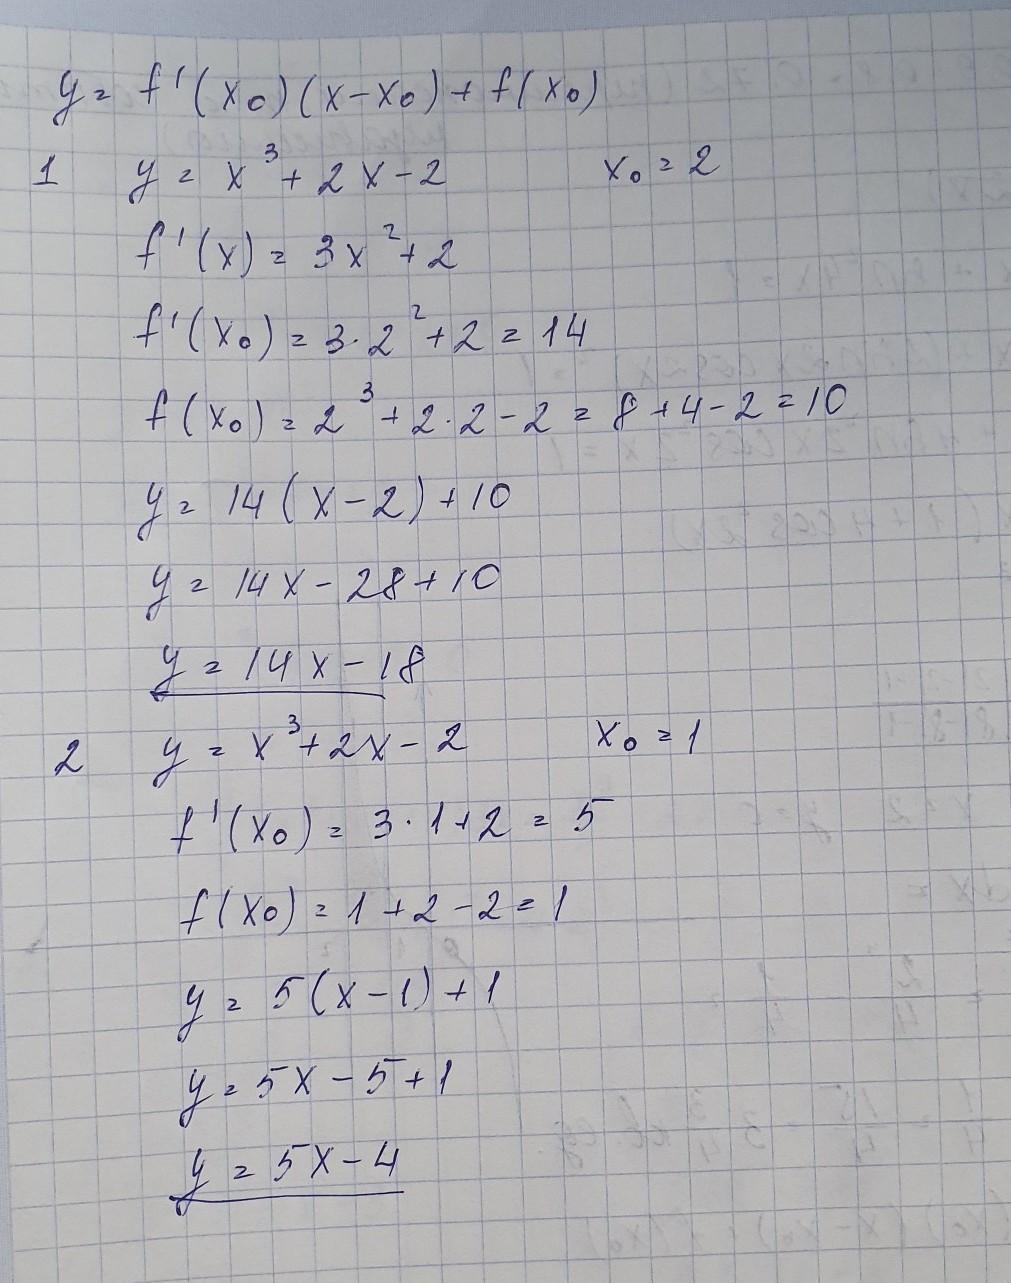 y = f'(x₀)(x-x₀)+f(x₀)
1 y = x³+2x-2 x₀=2
f'(x) = 3x²+2
f'(x₀) = 3·2²+2 = 14
f(x₀) = 2³+2·2-2 = 8+4-2=10
y = 14(x-2)+10
y = 14x-28+10
y = 14x-18
2 y = x³+2x-2 x₀=1
f'(x₀) = 3·1+2 = 5
f(x₀) = 1+2-2 = 1
y = 5(x-1)+1
y = 5x-5+1
y = 5x-4